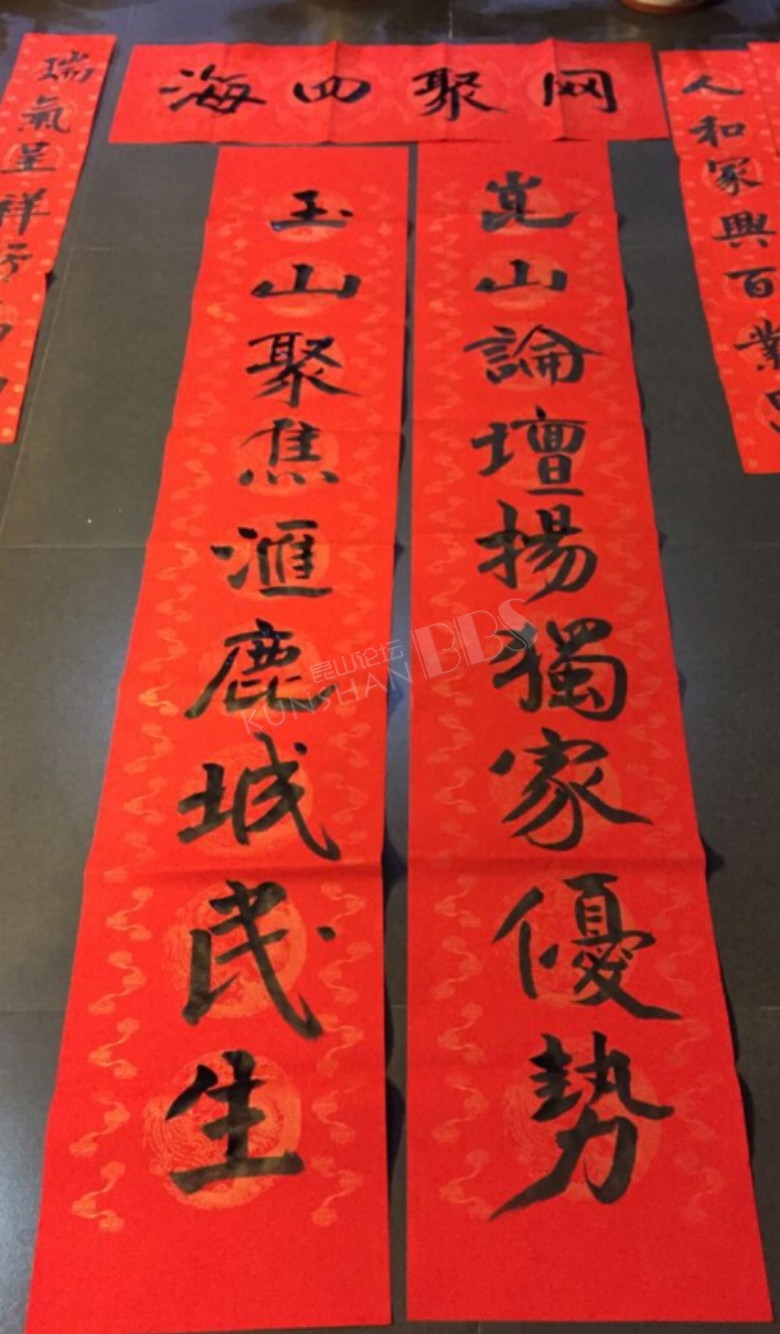 网聚四海
崑山論壇揚獨家優勢
玉山聚焦滙鹿城民生
人和家興百業
瑞氣呈祥
昆山论坛
KUNSHAN BBS